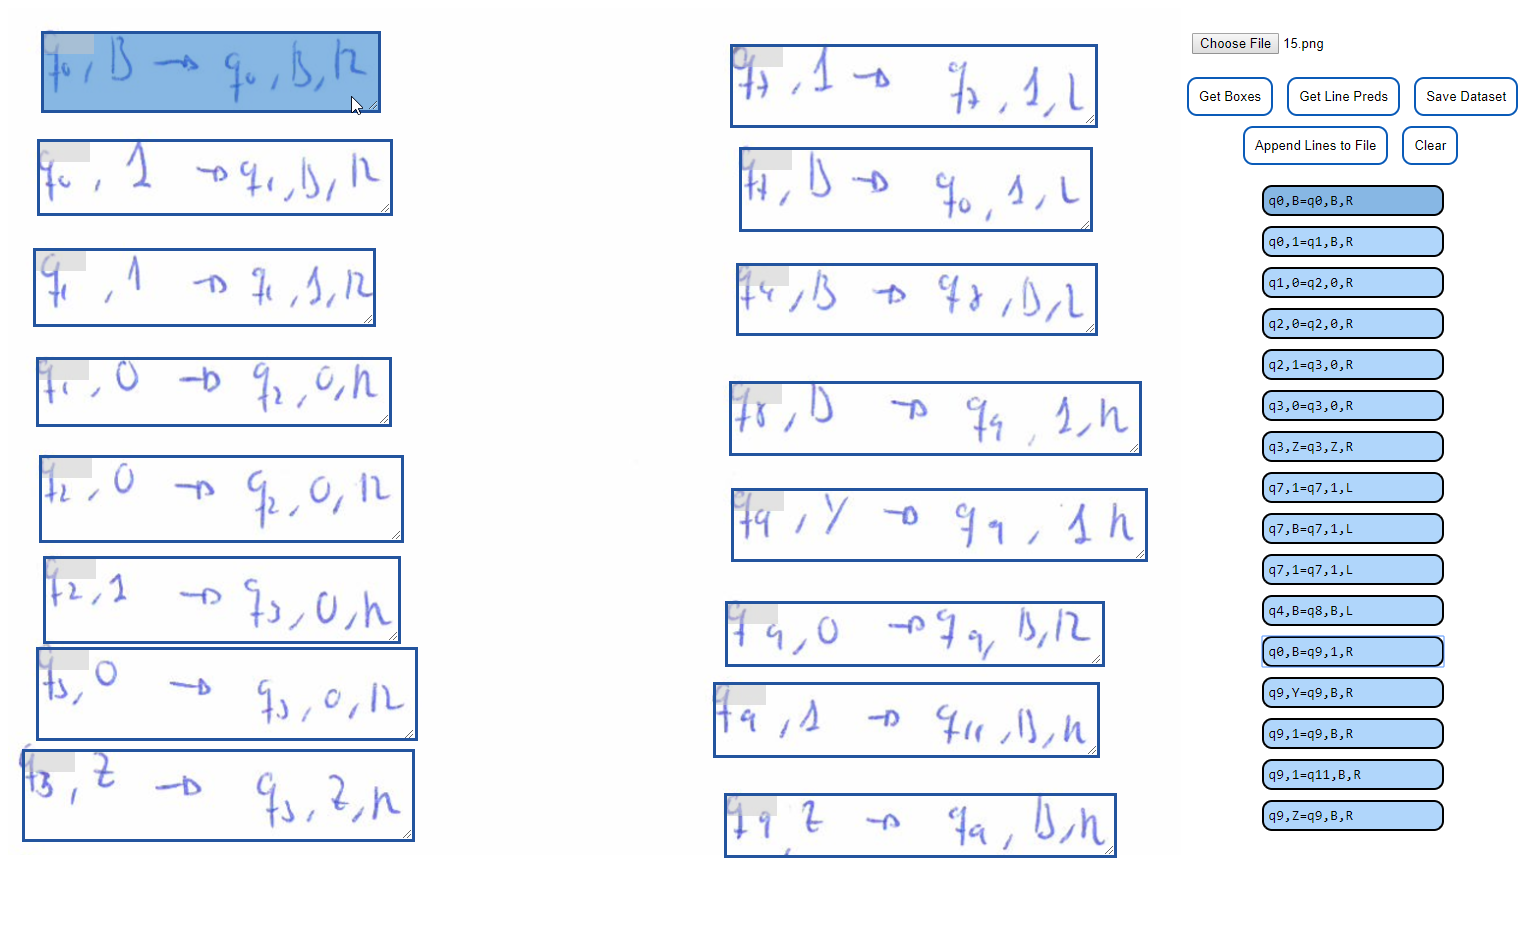 q0, B → q0, B, R
q0, 1 → q1, B, R
q1, 1 → q1, 1, R
q1, 0 → q2, 0, R
q2, 0 → q2, 0, R
q2, 1 → q3, 0, R
q3, 0 → q3, 0, R
q3, Z → q3, Z, R
q7, 1 → q7, 1, L
q7, B → q0, 1, L
q4, B → q8, B, L
q8, B → q9, 1, R
q9, Y → q9, 1 R
q9, 0 → q9, B, R
q9, 1 → q11, B, R
q9, Z → q9, B, R
Choose File 15.png
Get Boxes Get Line Preds Save Dataset
Append Lines to File Clear
q0,B=q0,B,R
q0,1=q1,B,R
q1,0=q2,0,R
q2,0=q2,0,R
q2,1=q3,0,R
q3,0=q3,0,R
q3,Z=q3,Z,R
q7,1=q7,1,L
q7,B=q7,1,L
q7,1=q7,1,L
q4,B=q8,B,L
q0,B=q9,1,R
q9,Y=q9,B,R
q9,1=q9,B,R
q9,1=q11,B,R
q9,Z=q9,B,R